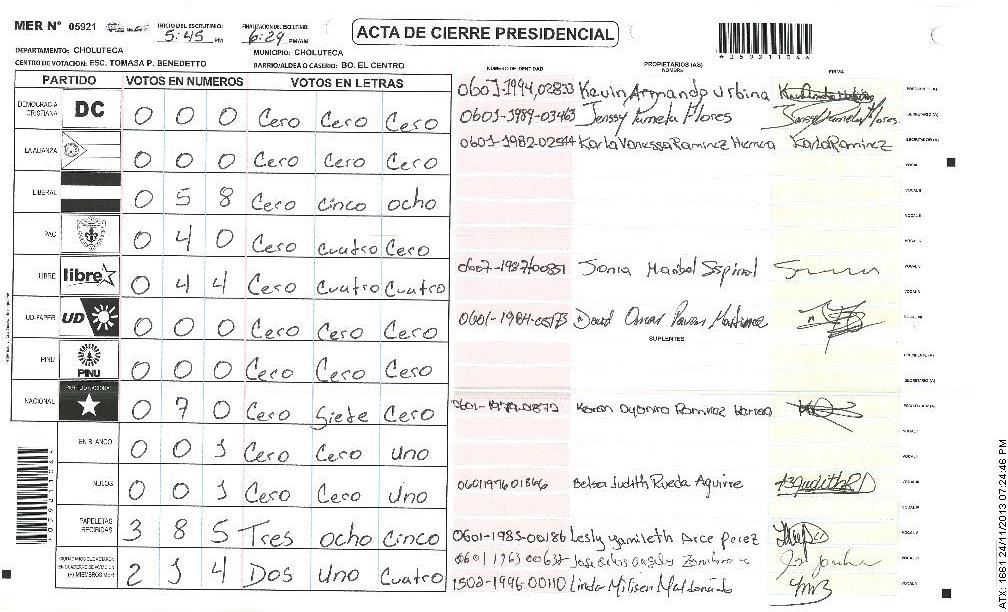 MER N° 05921 INICIO DEL ESCRUTINIO: 5:45 PM FINALIZACION DEL ESCRUTINIO: 6:29 PM/AM
ACTA DE CIERRE PRESIDENCIAL
DEPARTAMENTO: CHOLUTECA MUNICIPIO: CHOLUTECA
CENTRO DE VOTACION: ESC. TOMASA P. BENEDETTO BARRIO/ALDEA O CASERIO: BO. EL CENTRO
PARTIDO VOTOS EN NUMEROS VOTOS EN LETRAS
DEMOCRACIA CRISTIANA DC 0 0 0 Cero Cero Cero
LA ALIANZA 0 0 0 Cero Cero Cero
LIBERAL 0 5 8 Cero cinco ocho
PAC 0 4 0 Cero cuatro Cero
LIBRE libre 0 4 4 Cero cuatro cuatro
UD-FAPER UD 0 0 0 Cero Cero Cero
PINU PINU 0 0 0 Cero Cero Cero
NACIONAL PARTIDO NACIONAL 0 7 0 Cero Siete Cero
EN BLANCO 0 0 1 Cero Cero uno
NULOS 0 0 1 Cero Cero uno
PAPELETAS RECIBIDAS 3 8 5 Tres ocho cinco
(+) MIEMBROS MER 2 1 4 Dos uno cuatro
NUMERO DE IDENTIDAD PROPIETARIOS (AS) NOMBRE FIRMA
0601-1994,02833 Kevin Armando Urbina PRESIDENTE (A)
0601-1989-03463 Jenssy Pamela Flores SECRETARIO (A)
0601-1982-02544 Karla Vanessa Ramirez Karla Ramirez ESCRUTADOR (A)
VOCAL I
VOCAL II
VOCAL III
VOCAL IV
0607-1987-00851 Sonia Maribel Espinal VOCAL V
VOCAL VI
0601-1984-05173 David Omar Pavon Martinez VOCAL VII
SUPLENTES
PRESIDENTE (A)
SECRETARIO (A)
Keren Ramirez ESCRUTADOR (A)
VOCAL I
VOCAL II
0601197601866 Belsa Judith Rueda Aguirre VOCAL III
VOCAL IV
0601-1985-00186 Lesly yamileth Arce perez VOCAL V
VOCAL VI
1503-1996-00110 Linda Maldonado VOCAL VII
ATX: 1661 24/11/2013 07:24:46 PM